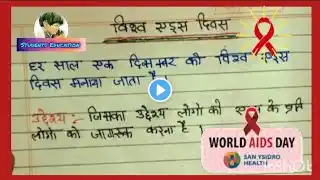 विश्व एड्स दिवस
STUDENTS EDUCATION
हर साल एक दिसम्बर को विश्व एड्स
दिवस मनाया जाता है।
उद्देश्य :- जिसका उद्देश्य लोगो को के प्रति
लोगो को जागरूक करना है।
WORLD AIDS DAY
SAN YSIDRO
HEALTH